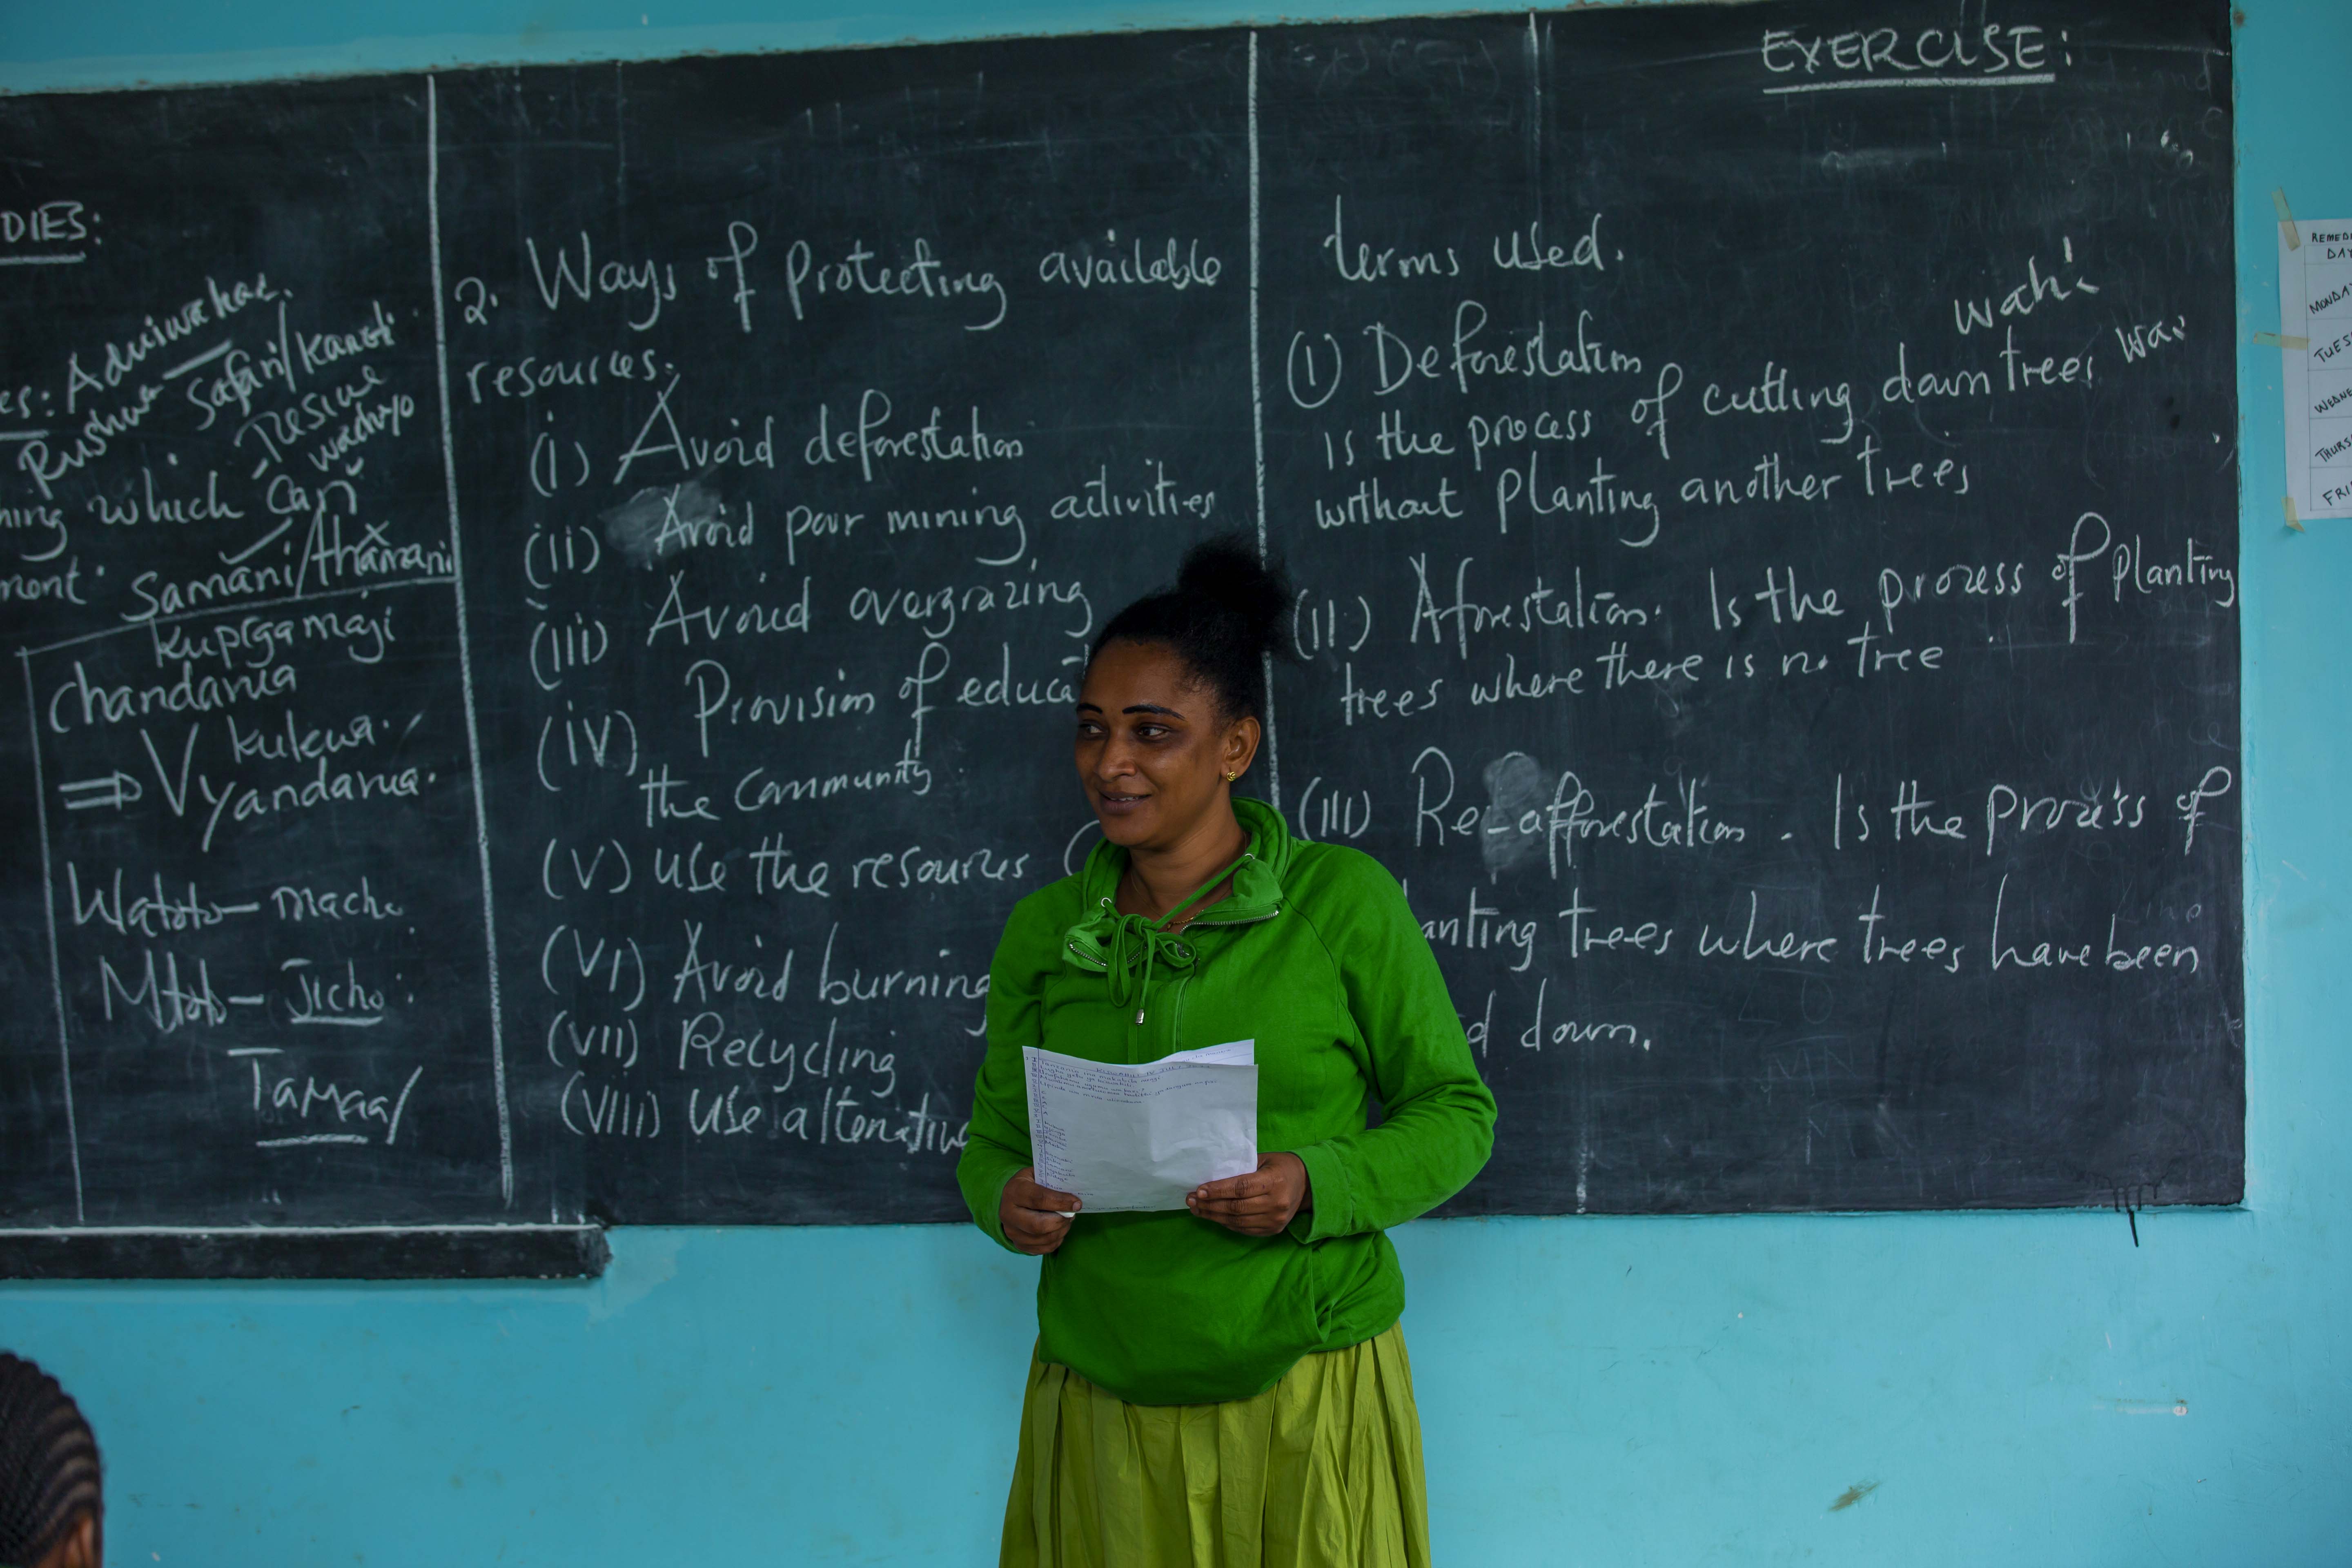 DIES:
es: Aduiwahac.
Rushwa - Safari/Kanati.
Tusiwe
wachoyo
ning which can
ment. Samani/Thamani
Kupigamaji
Chandarua
Kukua.
⇒ Vyandarua.
Watoto - macho
Mtoto - Jicho.
Tamaa/
2. Ways of protecting available
resources.
(i) Avoid deforestation
(ii) Avoid poor mining activities
(iii) Avoid overgrazing
(iv) Provision of educa
the Community.
(V) Use the resources
(VI) Avoid burning
(VII) Recycling
(VIII) Use alternative
EXERCISE:
terms used.
wahi
(1) Deforestation
is the process of cutting down trees
without planting another trees
(II) Aforestation. Is the process of planting
trees where there is no tree
(III) Re-afforestation. Is the process of
anting trees where trees have been
d down.
REMEDI
DAY
MONDA
TUES
WEDNE
THURS
FRI